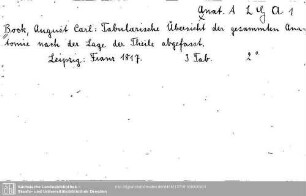 Anat. A
Bock, August Carl: Tabularische Übersicht der gesammten Ana-
tomie nach der Lage der Theile abgefasst.
Leipzig: Franz 1817. 3 Tab. 2°
Sächsische Landesbibliothek -
Staats- und Universitätsbibliothek Dresden